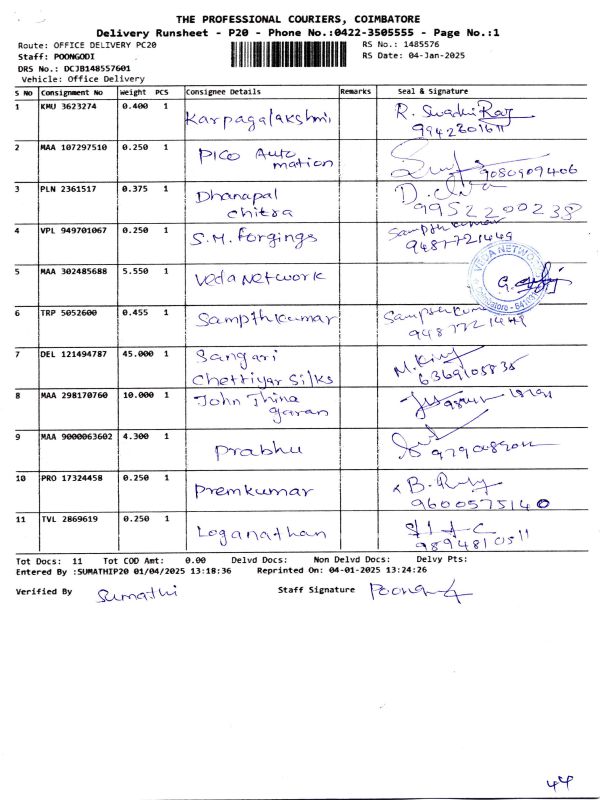 THE PROFESSIONAL COURIERS, COIMBATORE
Delivery Runsheet - P20 - Phone No.:0422-3505555 - Page No.:1
Route: OFFICE DELIVERY PC20 RS No.: 1485576
Staff: POONGODI RS Date: 04-Jan-2025
DRS No.: DCJB148557601
Vehicle: Office Delivery
S NO Consignment No Weight PCS Consignee Details Remarks Seal & Signature
1 KMU 3623274 0.400 1 Karpagalakshmi R. Swathi Raj
9942301611
2 MAA 107297510 0.250 1 PICO Auto
mation 9080909406
3 PLN 2361517 0.375 1 Dhanapal
chitra 9952200238
4 VPL 949701067 0.250 1 S.M. Forgings Sampthkumar
9487721449
5 MAA 302485688 5.550 1 Veda Network VEDA NETWO
6 TRP 5052600 0.455 1 Sampthkumar
9487721449
7 DEL 121494787 45.000 1 Sangari
Chettiyar Silks 6369105835
8 MAA 298170760 10.000 1 John Thina
garan
9 MAA 9000063602 4.300 1 Prabhu
10 PRO 17324458 0.250 1 Premkumar
9600575140
11 TVL 2869619 0.250 1 Loganathan
9894810511
Tot Docs: 11 Tot COD Amt: 0.00 Delvd Docs: Non Delvd Docs: Delvy Pts:
Entered By :SUMATHIP20 01/04/2025 13:18:36 Reprinted On: 04-01-2025 13:24:26
Verified By Sumathi Staff Signature
44